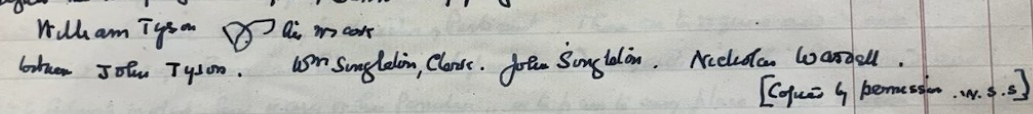 William Tyson his mark
between John Tyson. Wm Singleton, Clerk. John Singleton. Nicholas Wardell.
[Copied by permission. W.S.S]